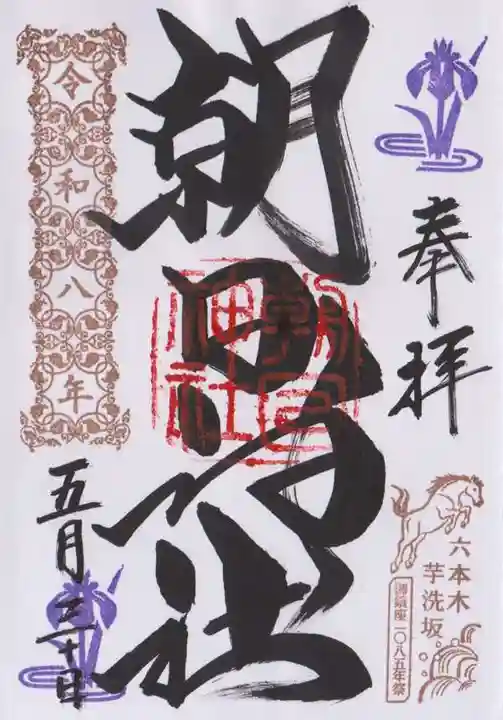 奉拝
六本木
芋洗坂
御鎮座一〇八五年祭
朝日神社
朝日神社
令和八年
五月三十日